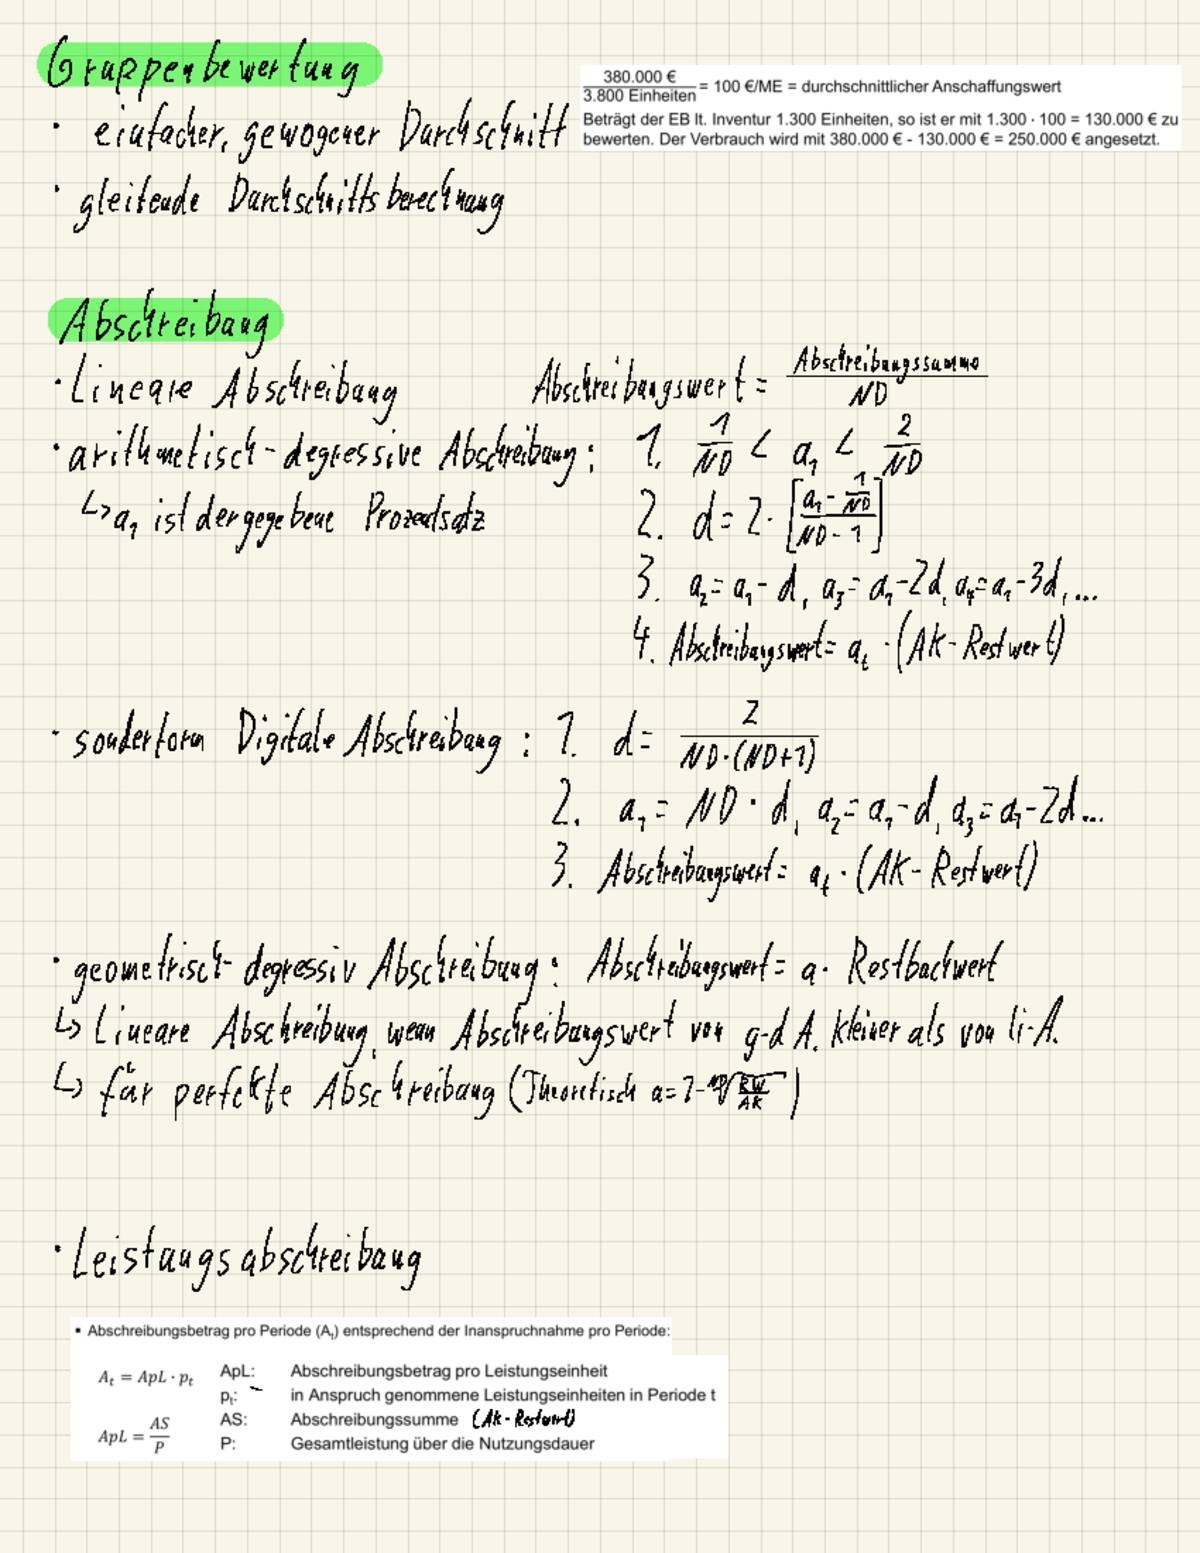 Gruppenbewertung
380.000 €
3.800 Einheiten = 100 €/ME = durchschnittlicher Anschaffungswert
· einfacher, gewogener Durchschnitt
Beträgt der EB lt. Inventur 1.300 Einheiten, so ist er mit 1.300 · 100 = 130.000 € zu
bewerten. Der Verbrauch wird mit 380.000 € - 130.000 € = 250.000 € angesetzt.
· gleitende Durchschnittsberechnung
Abschreibung
· Lineare Abschreibung Abschreibungswert = Abschreibungssumme / ND
· arithmetisch-degressive Abschreibung: 1. 1/ND < a₁ < 2/ND
↳ a₁ ist der gegebene Prozentsatz 2. d = 2 · [(a₁ - 1/ND) / (ND - 1)]
3. a₂ = a₁ - d, a₃ = a₁ - 2d, a₄ = a₁ - 3d, ...
4. Abschreibungswert = aₜ · (AK - Restwert)
· sonderform Digitale Abschreibung: 1. d = 2 / ND·(ND+1)
2. a₁ = ND · d, a₂ = a₁ - d, a₃ = a₁ - 2d...
3. Abschreibungswert = aₜ · (AK - Restwert)
· geometrisch-degressiv Abschreibung: Abschreibungswert = a · Restbuchwert
↳ Lineare Abschreibung, wenn Abschreibungswert von g-d A. kleiner als von li-A.
↳ für perfekte Abschreibung (Theoretisch a = 1 - ᴺᴰ√(RW/AK))
· Leistungsabschreibung
▪ Abschreibungsbetrag pro Periode (Aₜ) entsprechend der Inanspruchnahme pro Periode:
Aₜ = ApL · pₜ ApL: Abschreibungsbetrag pro Leistungseinheit
pₜ: in Anspruch genommene Leistungseinheiten in Periode t
ApL = AS / P AS: Abschreibungssumme (AK - Restwert)
P: Gesamtleistung über die Nutzungsdauer